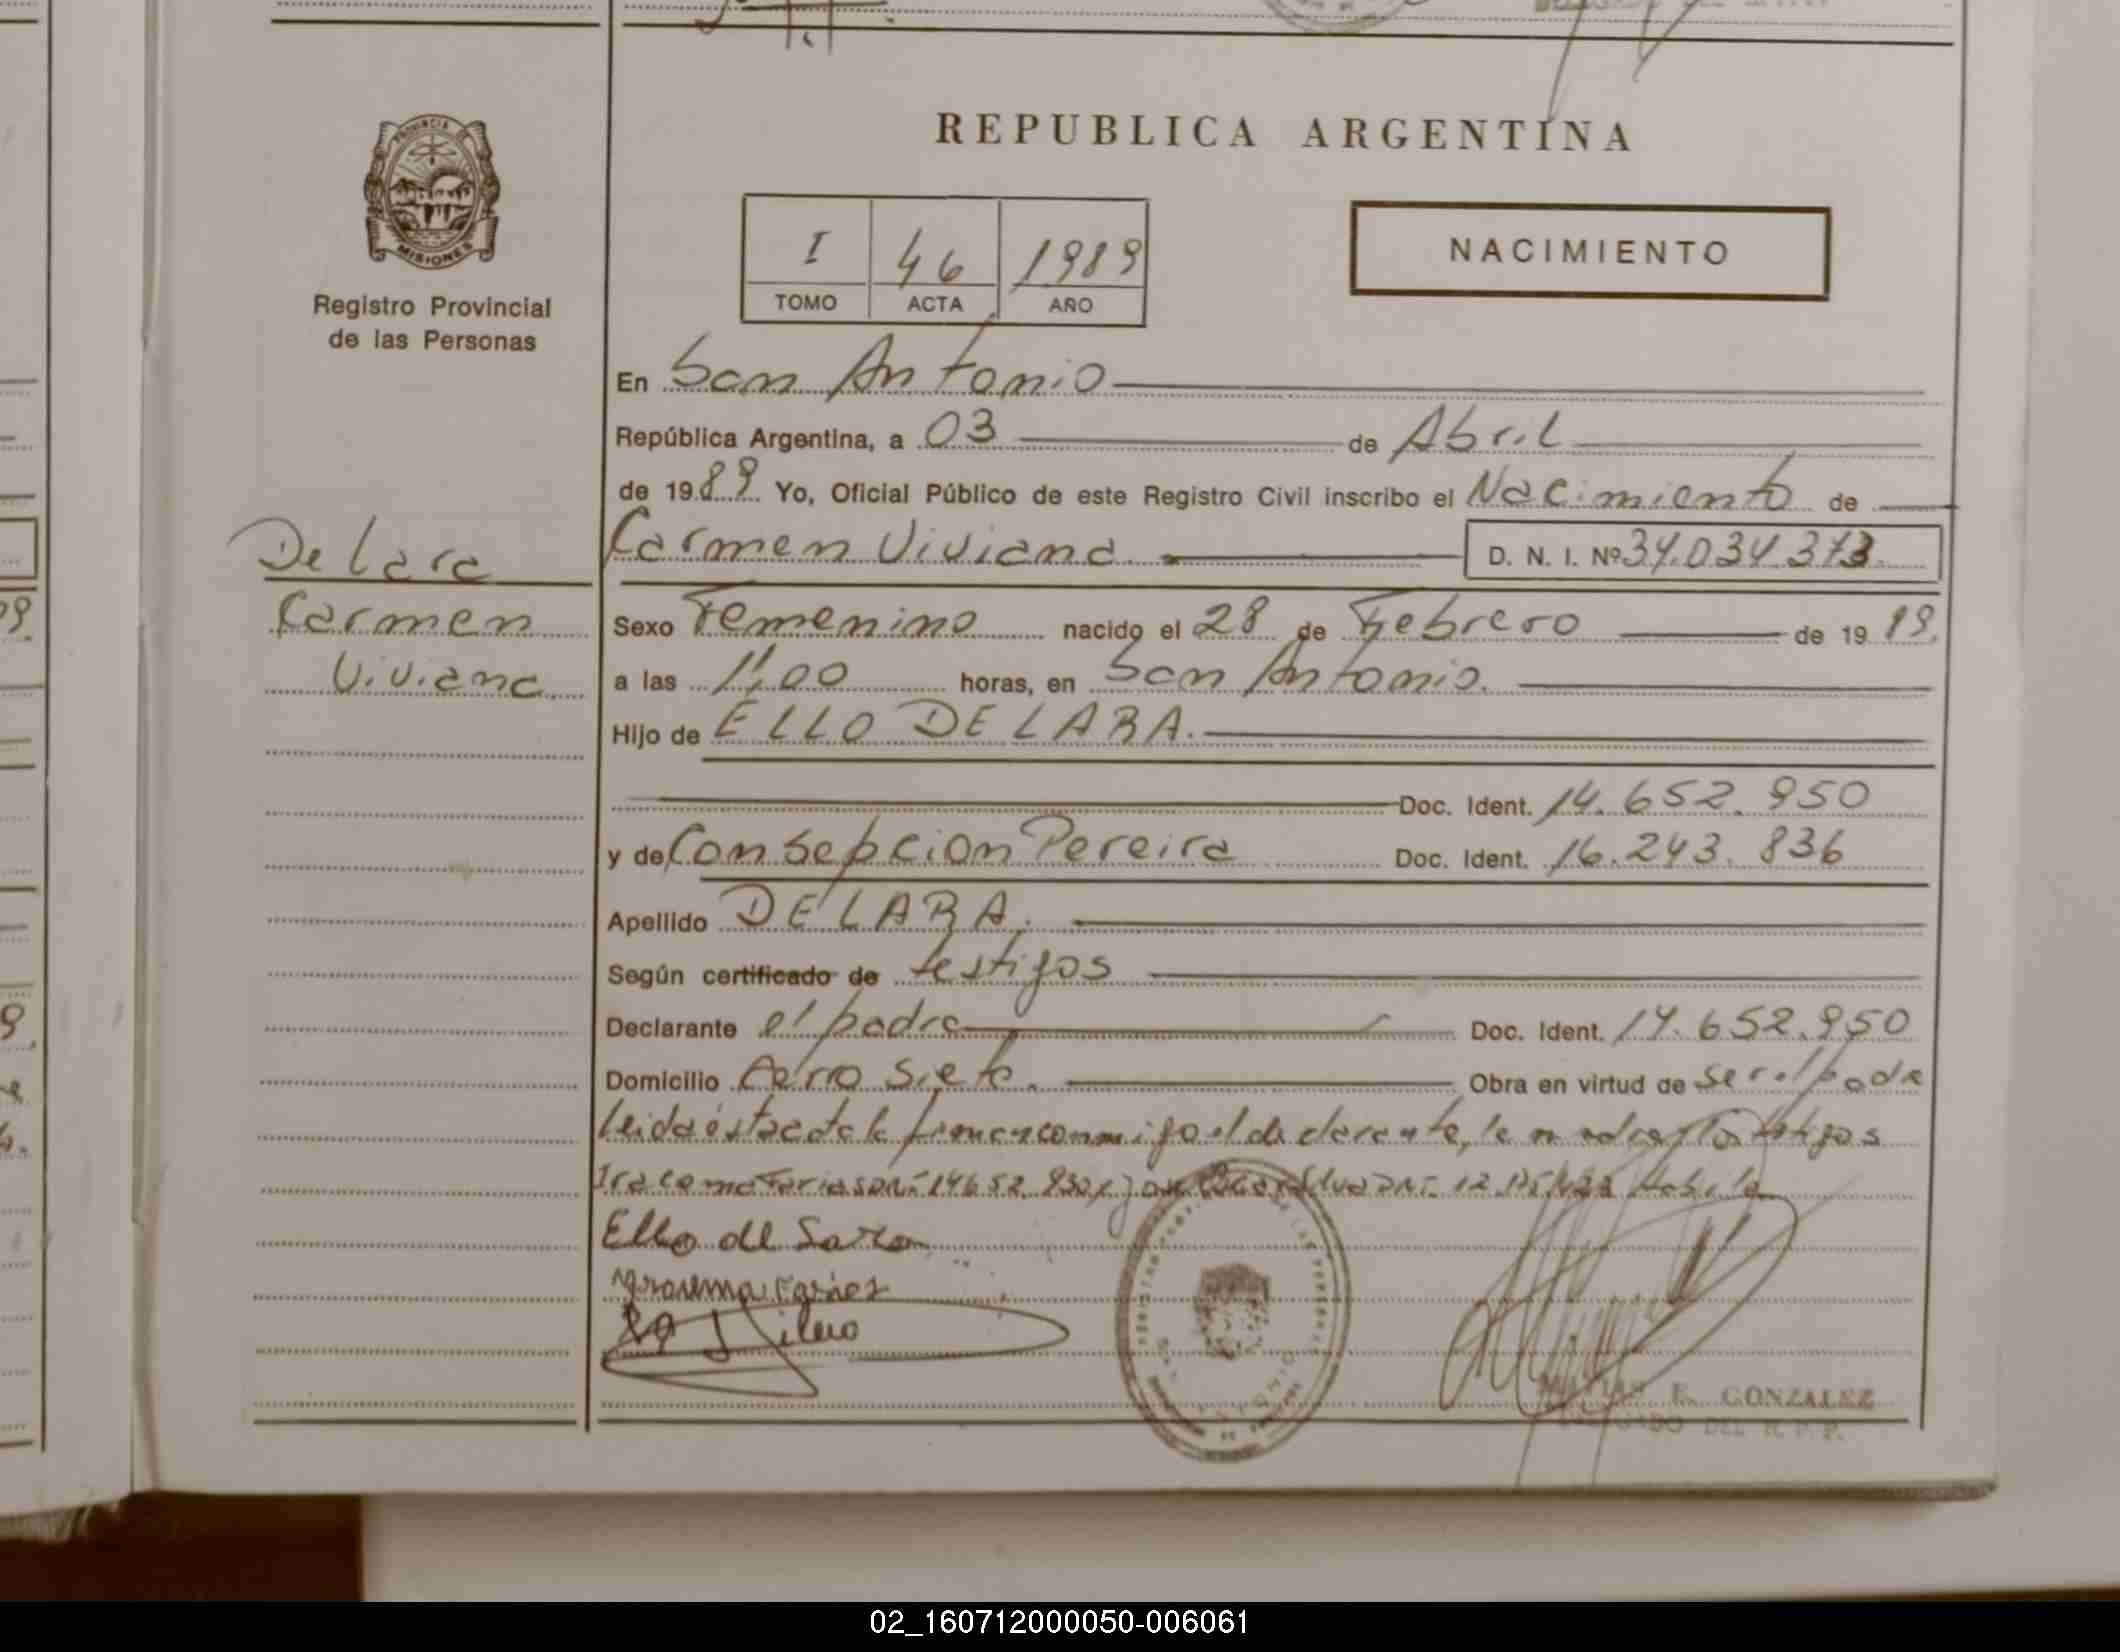 REPUBLICA ARGENTINA
PROVINCIA DE
MISIONES
Registro Provincial
de las Personas
I 46 1989
TOMO ACTA AÑO
NACIMIENTO
En San Antonio
República Argentina, a 03 de Abril
de 1989 Yo, Oficial Público de este Registro Civil inscribo el Nacimiento de
De Lara
Carmen
Viviana
Carmen Viviana D. N. I. Nº 34.034.373
Sexo Femenino nacido el 28 de Febrero de 1989.
a las 11,00 horas, en San Antonio.
Hijo de ELLO DE LARA.
Doc. Ident. 14.652.950
y de Consepcion Pereira Doc. Ident. 16.243.836
Apellido DE LARA.
Según certificado de testigos
Declarante el padre Doc. Ident. 14.652.950
Domicilio Cerro Siete. Obra en virtud de ser el padre
Leida ésta acta la firman conmigo el declarante, la madre y los testigos
Ello de
E. GONZALEZ
DEL R.P.P.
02_160712000050-006061